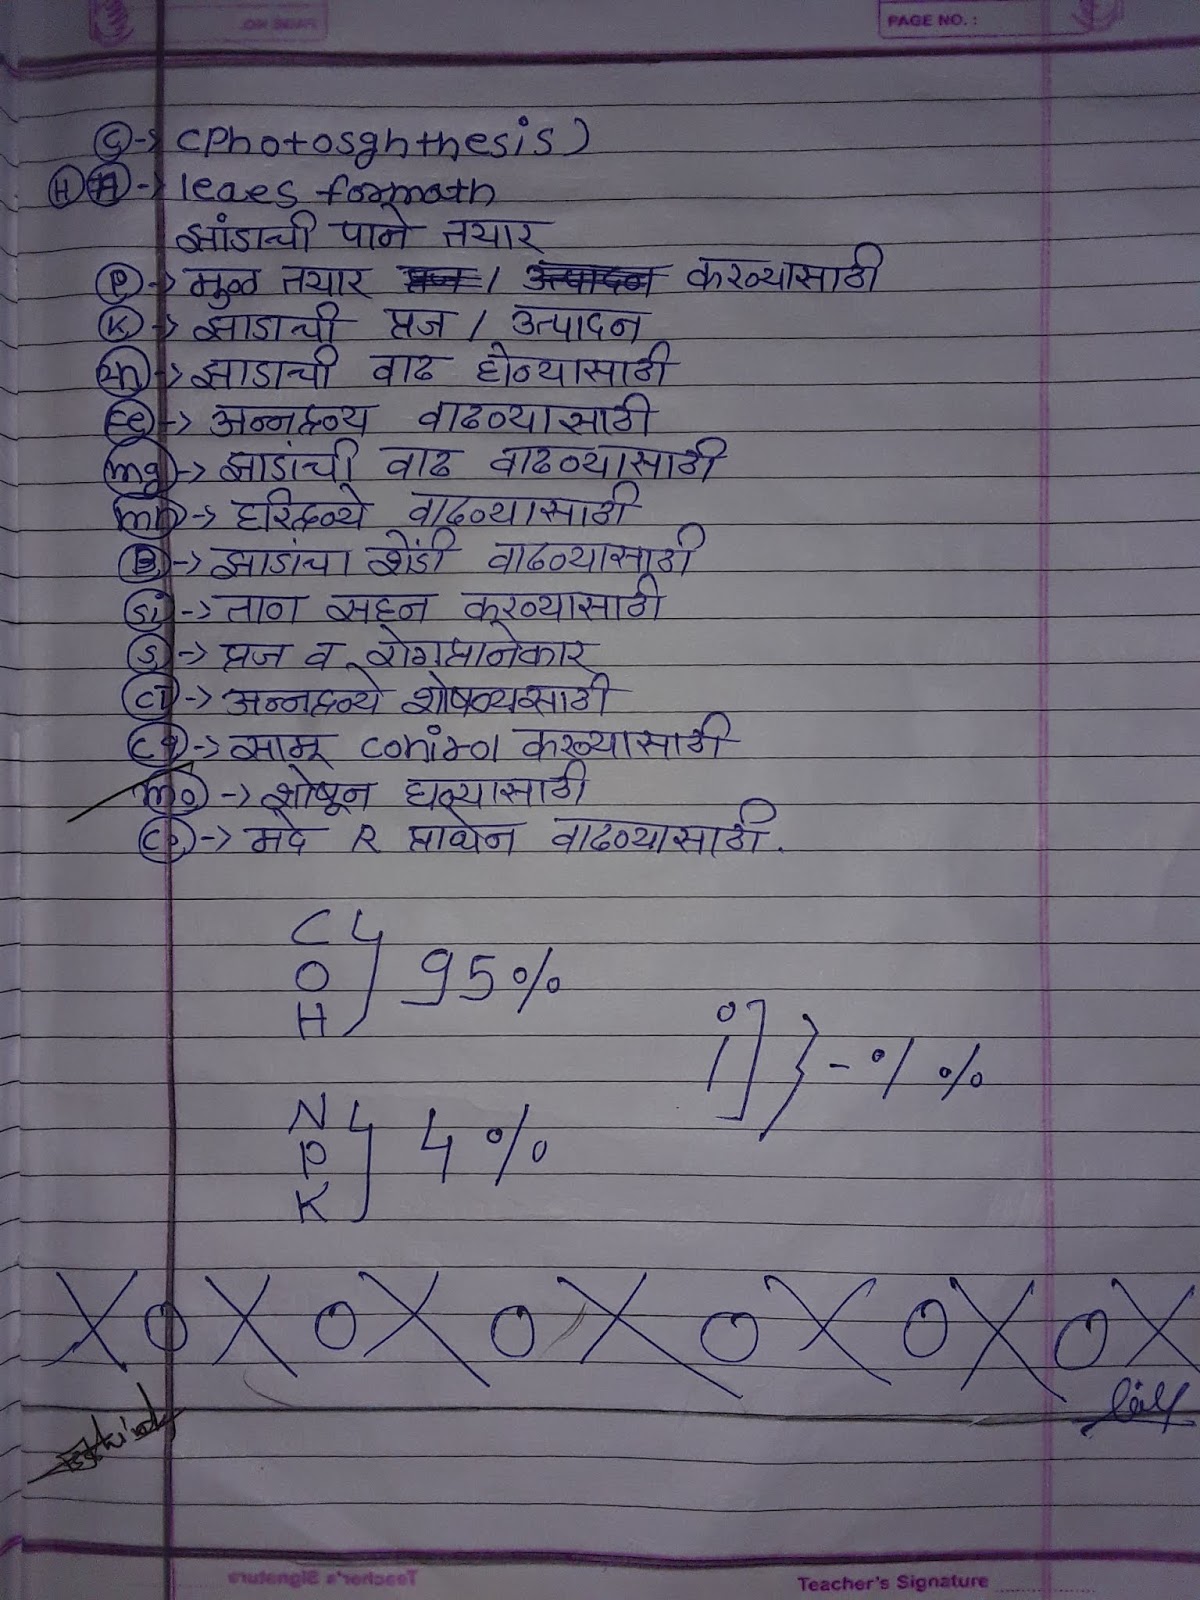 PAGE NO. :
C -> (Photosghthesis)
H -> leaes formath
झांडाची पाने तयार
P -> मुळ तयार / करण्यासाठी
K -> झाडाची प्रत / उत्पादन
Zn -> झाडाची वाढ होण्यासाठी
Fe -> अन्नद्रव्य वाढण्यासाठी
mg -> झाडांची वाढ वाढण्यासाठी
mn -> हरिद्रव्ये वाढण्यासाठी
B -> झाडांचा शेंडी वाढण्यासाठी
Si -> ताण सहन करण्यासाठी
S -> प्रत व
Cl -> अन्नद्रव्ये शोषण्यसाठी
-> सामू control करण्यासाठी
mo -> शोषून घेण्यासाठी
-> R वाढण्यासाठी.
C
O 95%
H
N
P 4%
K
X O X O X O X O X O X O X
Teacher's Signature